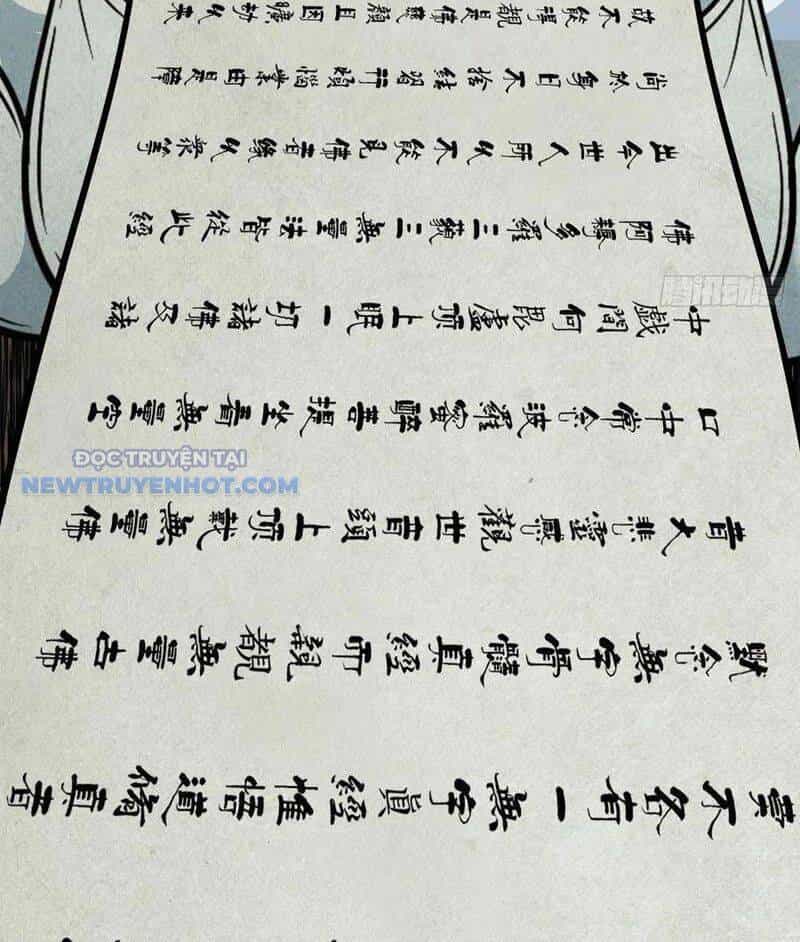 實不名有一無字真經惟悟道脩真者
默念無字骨髓真經而親覩無量古佛
音大悲靈感觀世音頭上頂戴無量佛
口中常念波羅蜜醉菩提坐看無量空
中戲問何毘盧頂上眠一切諸佛及諸
佛阿耨多羅三藐三無量法皆從此經
出今世人所以不能見佛者緣以眾等
尚然身日不捨結習行煩惱業由是障
故不能得親是佛慈顏且因曠劫以來
ĐỌC TRUYỆN TẠI
NEWTRUYENHOT.COM